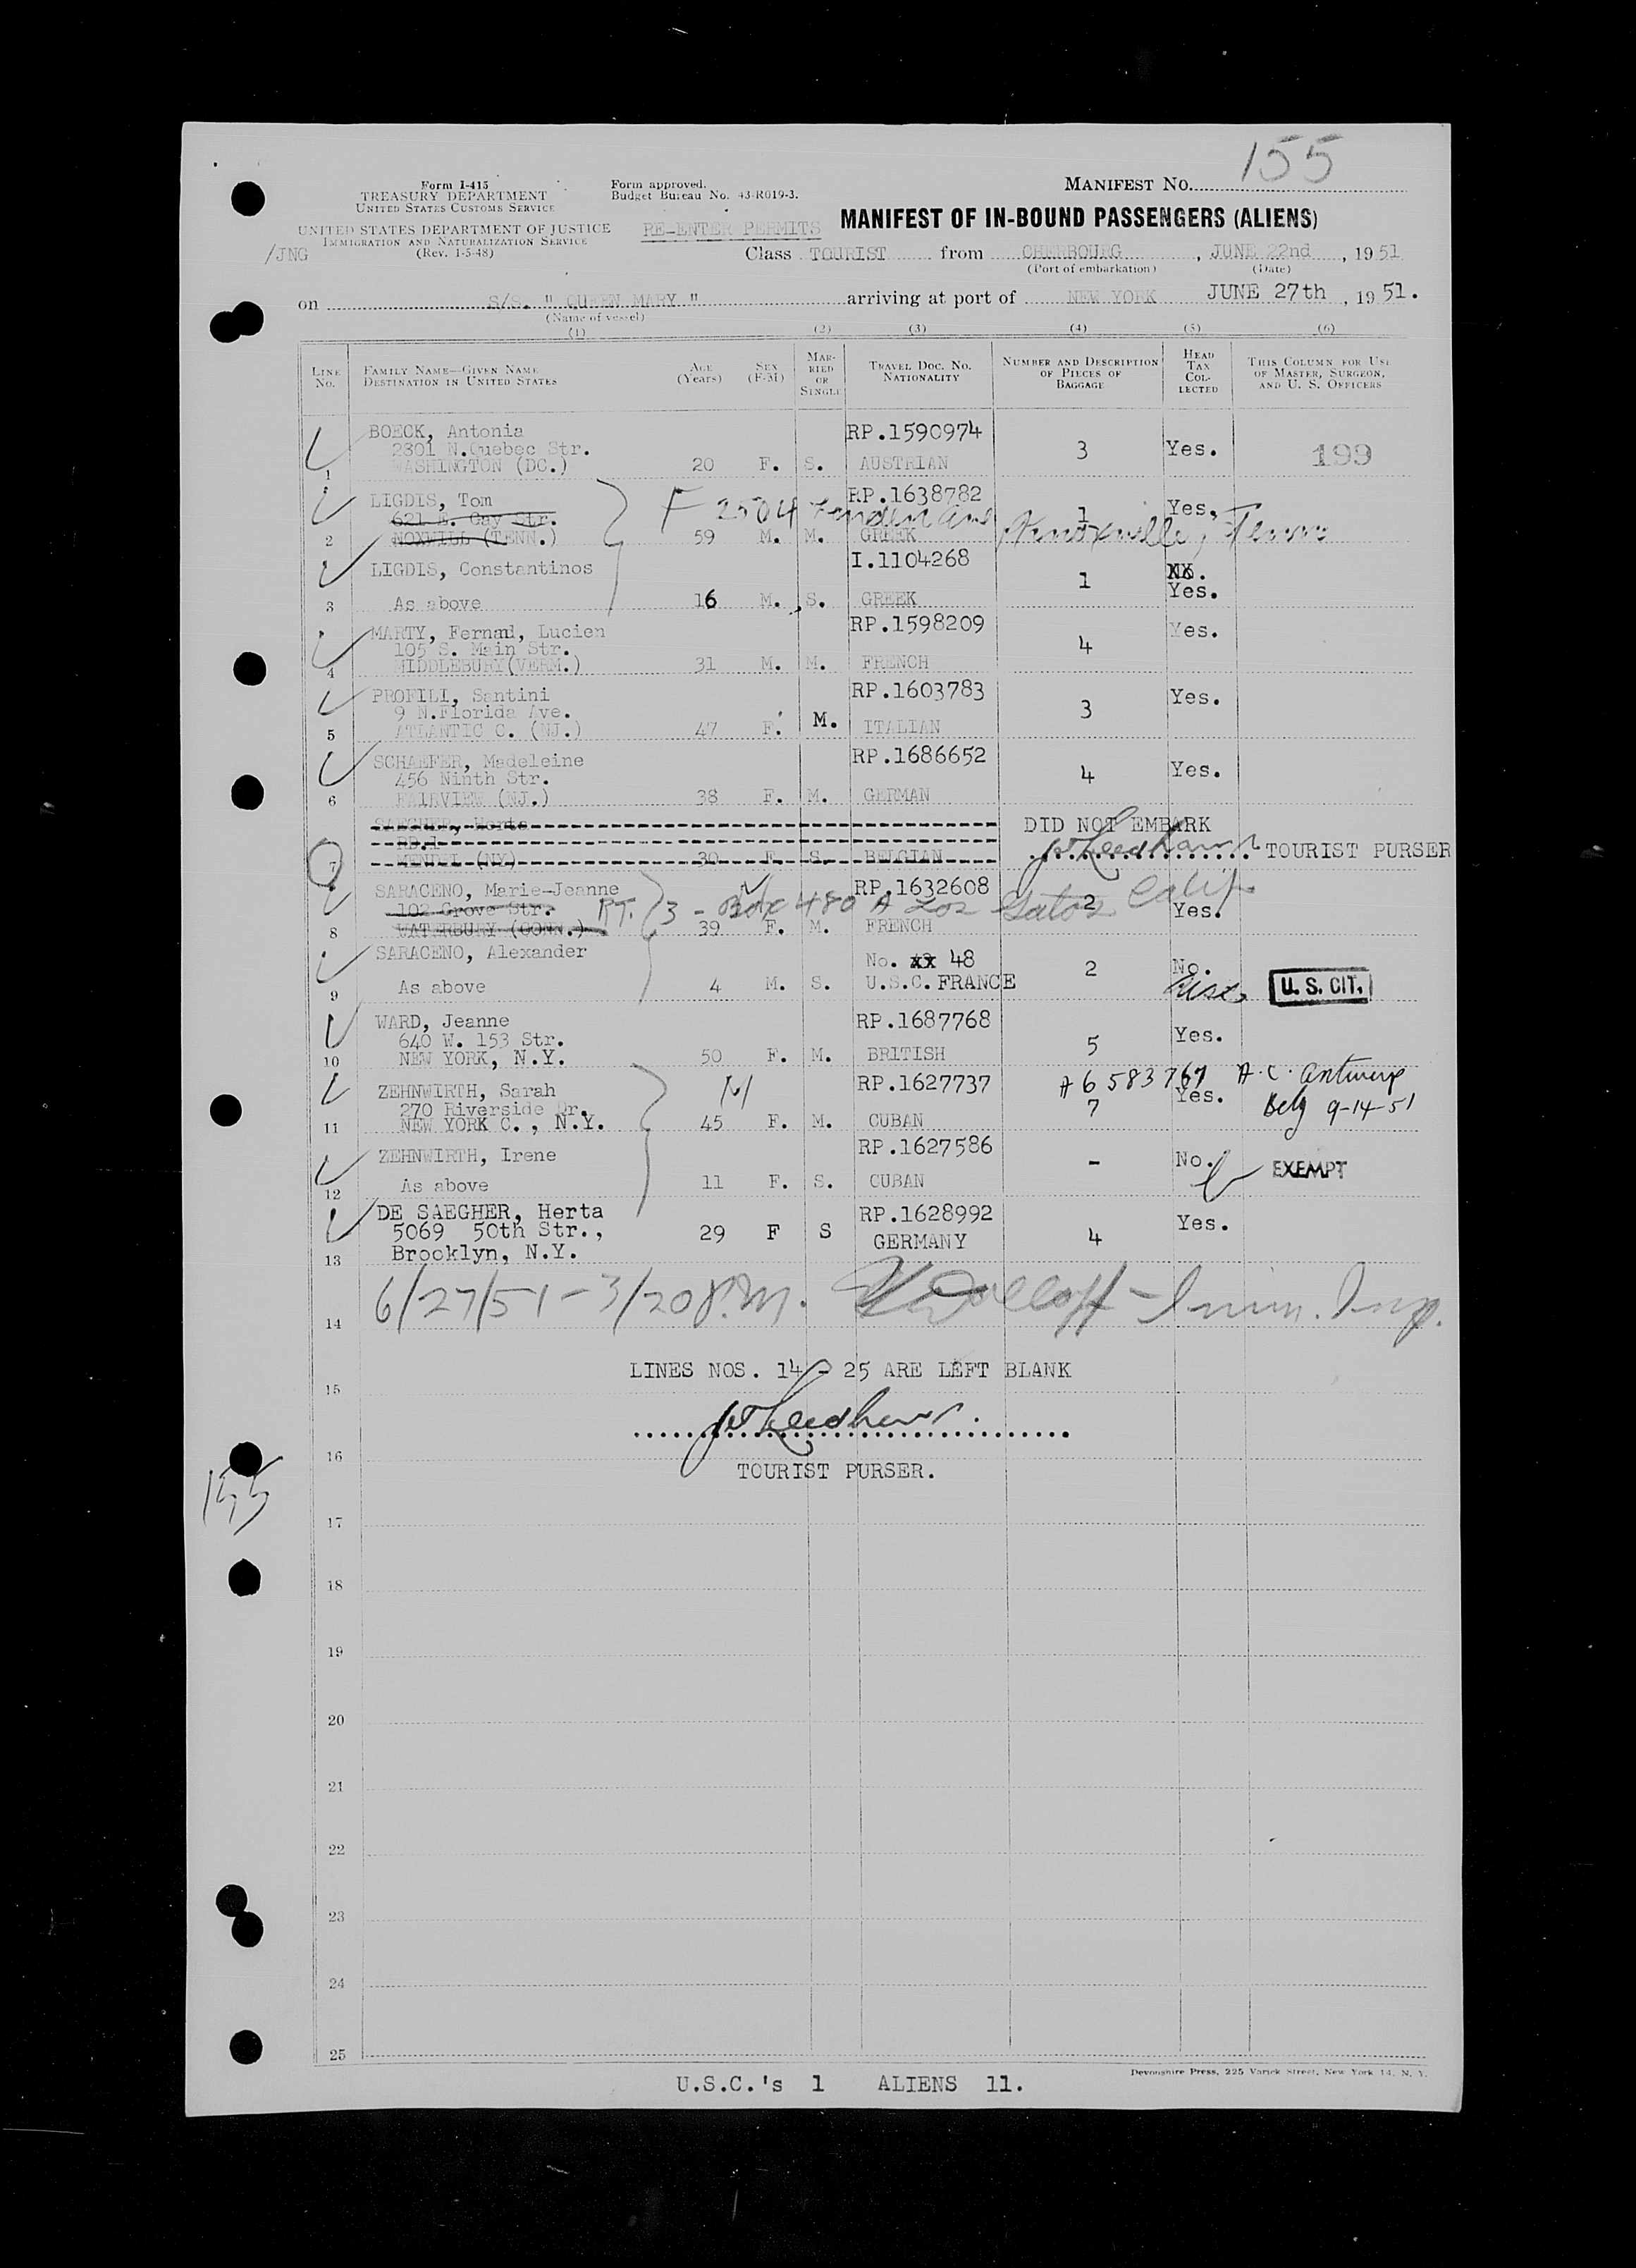 155
Form I-415
TREASURY DEPARTMENT
UNITED STATES CUSTOMS SERVICE
UNITED STATES DEPARTMENT OF JUSTICE
IMMIGRATION AND NATURALIZATION SERVICE
(Rev. 1-5-48)
/JNG
Form approved.
Budget Bureau No. 43-R019-3.
RE-ENTER PERMITS
MANIFEST NO.
MANIFEST OF IN-BOUND PASSENGERS (ALIENS)
Class TOURIST from CHERBOURG, JUNE 22nd, 1951
(Port of embarkation) (Date)
on S/S. " QUEEN MARY " arriving at port of NEW YORK JUNE 27th, 1951.
(Name of vessel)
(1) (2) (3) (4) (5) (6)
LINE No. FAMILY NAME—GIVEN NAME DESTINATION IN UNITED STATES AGE (Years) SEX (F-M) MARRIED OR SINGLE TRAVEL DOC. NO. NATIONALITY NUMBER AND DESCRIPTION OF PIECES OF BAGGAGE HEAD TAX COLLECTED THIS COLUMN FOR USE OF MASTER, SURGEON, AND U. S. OFFICERS
BOECK, Antonia RP.1590974
2801 N.Quebec Str. 3 Yes. 199
1 WASHINGTON (DC.) 20 F. S. AUSTRIAN
LIGDIS, Tom RP.1638782
621 E. Gay Str. F 2504 Linden Ave Knoxville, Tenn 1 Yes.
2 NOXWILL (TENN.) 59 M. M. GREEK
LIGDIS, Constantinos I.1104268
1 Yes.
3 As above 16 M. S. GREEK
MARTY, Fernand, Lucien RP.1598209
105 S. Main Str. 4 Yes.
4 MIDDLEBURY(VERM.) 31 M. M. FRENCH
PROFILI, Santini RP.1603783
9 N.Florida Ave. 3 Yes.
5 ATLANTIC C. (NJ.) 47 F. M. ITALIAN
SCHAEFER, Madeleine RP.1686652
456 Ninth Str. 4 Yes.
6 FAIRVIEW (NJ.) 38 F. M. GERMAN
SAEGHER, Herta DID NOT EMBARK
RD.1
7 MENDEL (NY) 30 F. S. BELGIAN TOURIST PURSER
SARACENO, Marie-Jeanne RP.1632608
102 Grove Str. RT. 3 - Box 480 A Los Gatos Calif 2 Yes.
8 WATERBURY (CONN.) 39 F. M. FRENCH
SARACENO, Alexander No. xx 48
2 No.
9 As above 4 M. S. U.S.C. FRANCE U. S. CIT.
WARD, Jeanne RP.1687768
640 W. 153 Str. 5 Yes.
10 NEW YORK, N.Y. 50 F. M. BRITISH
ZEHNWIRTH, Sarah RP.1627737 A6 583 767 A.C. Antwerp
270 Riverside Dr. 7 Yes. Belg 9-14-51
11 NEW YORK C., N.Y. 45 F. M. CUBAN
ZEHNWIRTH, Irene RP.1627586
- No. EXEMPT
12 As above 11 F. S. CUBAN
DE SAEGHER, Herta RP.1628992
5069 50th Str., 29 F S GERMANY 4 Yes.
13 Brooklyn, N.Y.
14 6/27/51 - 3/20 P.M. Imm. Insp.
LINES NOS. 14 - 25 ARE LEFT BLANK
15
16
TOURIST PURSER.
155
17
18
19
20
21
22
23
24
25
Devonshire Press, 225 Varick Street, New York 14, N. Y.
U.S.C.'s 1 ALIENS 11.